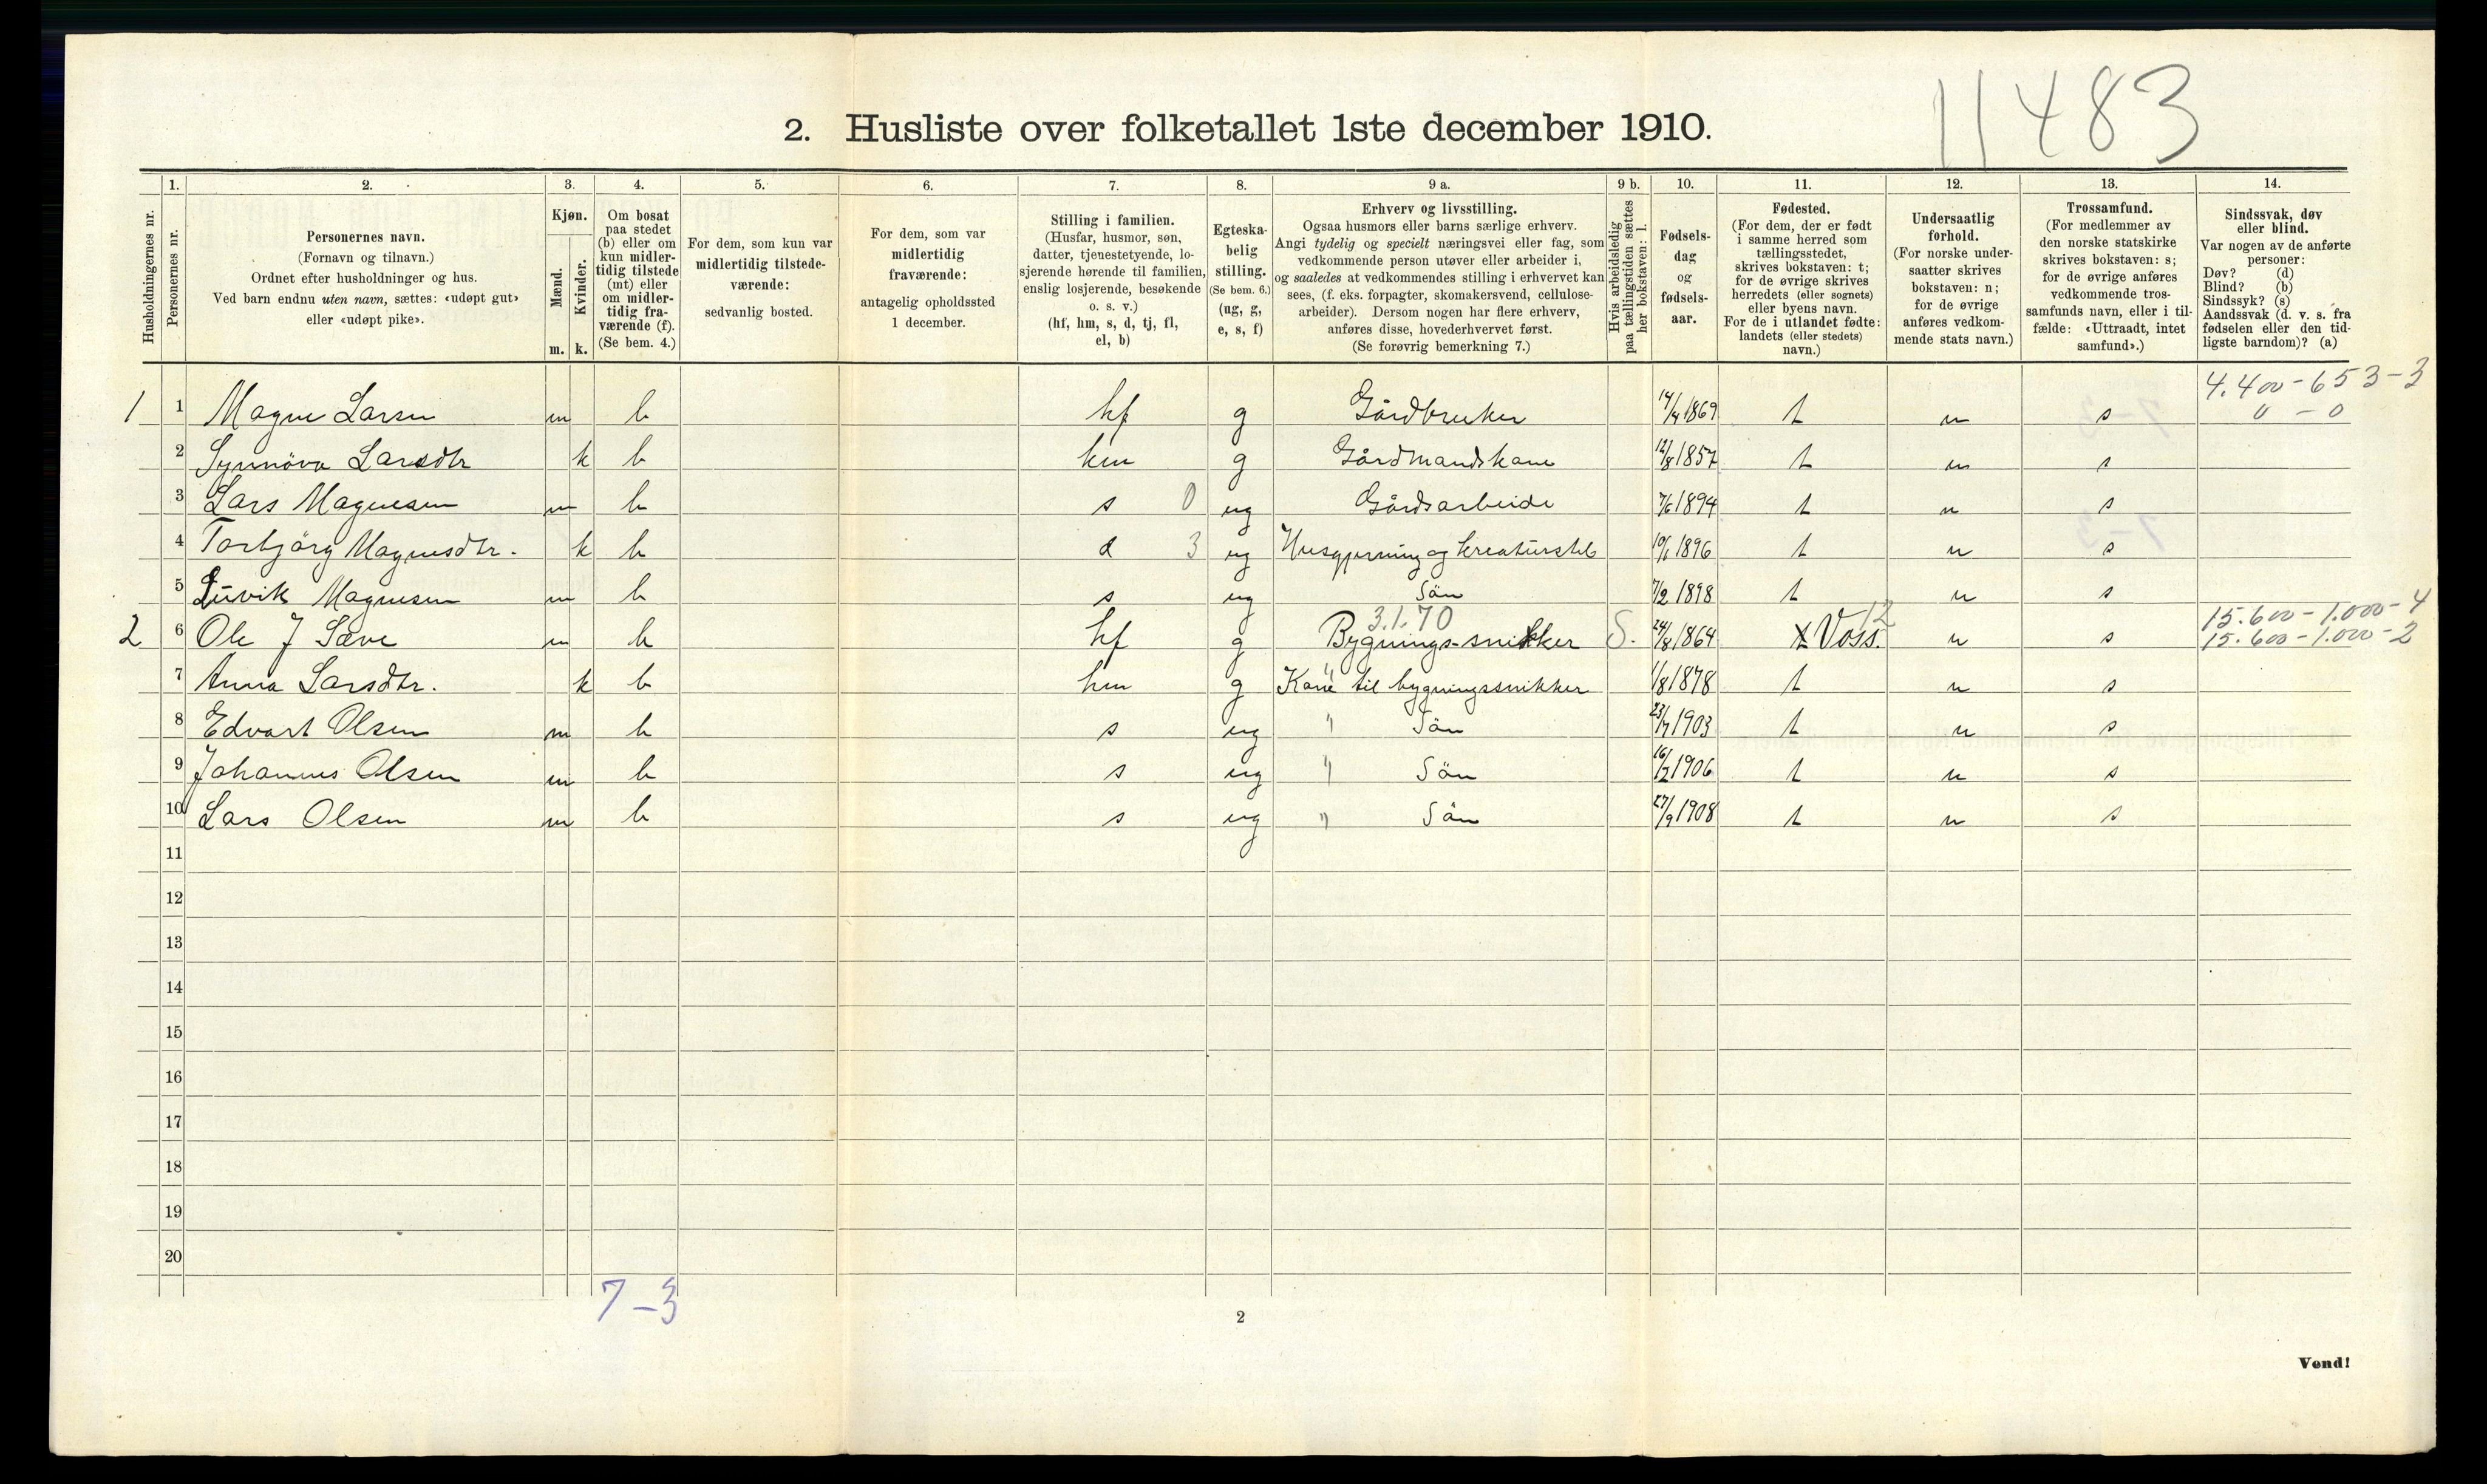 11483
2. Husliste over folketallet 1ste december 1910.
1. 2. 3. 4. 5. 6. 7. 8. 9 a. 9 b. 10. 11. 12. 13. 14.
Husholdningernes nr.
Personernes nr.
Personernes navn.
(Fornavn og tilnavn.)
Ordnet efter husholdninger og hus.
Ved barn endnu uten navn, sættes: «udøpt gut»
eller «udøpt pike».
Kjøn.
Mænd.
Kvinder.
m. k.
Om bosat
paa stedet
(b) eller om
kun midler-
tidig tilstede
(mt) eller
om midler-
tidig fra-
værende (f).
(Se bem. 4.)
For dem, som kun var
midlertidig tilstede-
værende:
sedvanlig bosted.
For dem, som var
midlertidig
fraværende:
antagelig opholdssted
1 december.
Stilling i familien.
(Husfar, husmor, søn,
datter, tjenestetyende, lo-
sjerende hørende til familien,
enslig losjerende, besøkende
o. s. v.)
(hf, hm, s, d, tj, fl,
el, b)
Egteska-
belig
stilling.
(Se bem. 6.)
(ug, g,
e, s, f)
Erhverv og livsstilling.
Ogsaa husmors eller barns særlige erhverv.
Angi tydelig og specielt næringsvei eller fag, som
vedkommende person utøver eller arbeider i,
og saaledes at vedkommendes stilling i erhvervet kan
sees, (f. eks. forpagter, skomakersvend, cellulose-
arbeider). Dersom nogen har flere erhverv,
anføres disse, hovederhvervet først.
(Se forøvrig bemerkning 7.)
Hvis arbeidsledig
paa tællingstiden sættes
her bokstaven: l.
Fødsels-
dag
og
fødsels-
aar.
Fødested.
(For dem, der er født
i samme herred som
tællingsstedet,
skrives bokstaven: t;
for de øvrige skrives
herredets (eller sognets)
eller byens navn.
For de i utlandet fødte:
landets (eller stedets)
navn.)
Undersaatlig
forhold.
(For norske under-
saatter skrives
bokstaven: n;
for de øvrige
anføres vedkom-
mende stats navn.)
Trossamfund.
(For medlemmer av
den norske statskirke
skrives bokstaven: s;
for de øvrige anføres
vedkommende tros-
samfunds navn, eller i til-
fælde: «Uttraadt, intet
samfund».)
Sindssvak, døv
eller blind.
Var nogen av de anførte
personer:
Døv? (d)
Blind? (b)
Sindssyk? (s)
Aandssvak (d. v. s. fra
fødselen eller den tid-
ligste barndom)? (a)
4.400-653-3
1 1 Magne Larsen m b hf g Gårdbruker 14/4 1869 t n s 0 - 0
2 Synnöva Larsdtr k b hm g Gårdmandskone 12/8 1857 t n s
3 Lars Magnesen m b s 0 ug Gårdsarbeide 7/6 1894 t n s
4 Torbjörg Magnesdtr. k b d 3 ug Husgjerning og kreaturstel 10/1 1896 t n s
5 Luvik Magnesen m b s ug Sön 7/2 1898 t n s
3.1.70 12 15.600-1.000-4
2 6 Ole J Sæve m b hf g Bygnings-snikker S. 24/8 1864 Voss. n s 15.600-1.000-2
7 Anna Larsdtr. k b hm g Kone til bygningssnikker 1/8 1878 t n s
8 Edvart Olsen m b s ug " Sön 23/7 1903 t n s
9 Johannes Olsen m b s ug " Sön 16/2 1906 t n s
10 Lars Olsen m b s ug " Sön 27/9 1908 t n s
11
12
13
14
15
16
17
18
19
20
7-3
2
Vend!